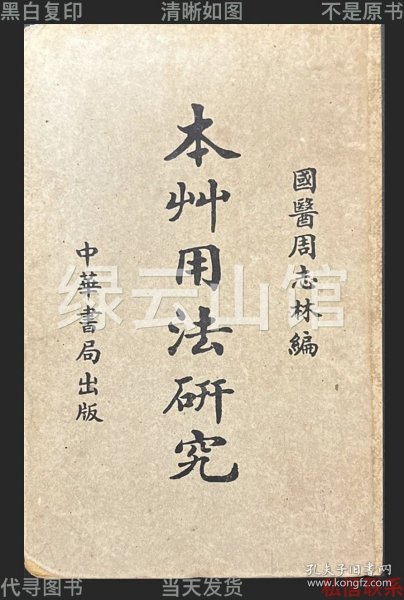 黑白复印 清晰如图 不是原书
國醫周志林編
本艸用法研究
中華書局出版
绿云山馆
孔夫子旧书网
https://www.kongfz.com
代寻图书 当天发货 私信联系